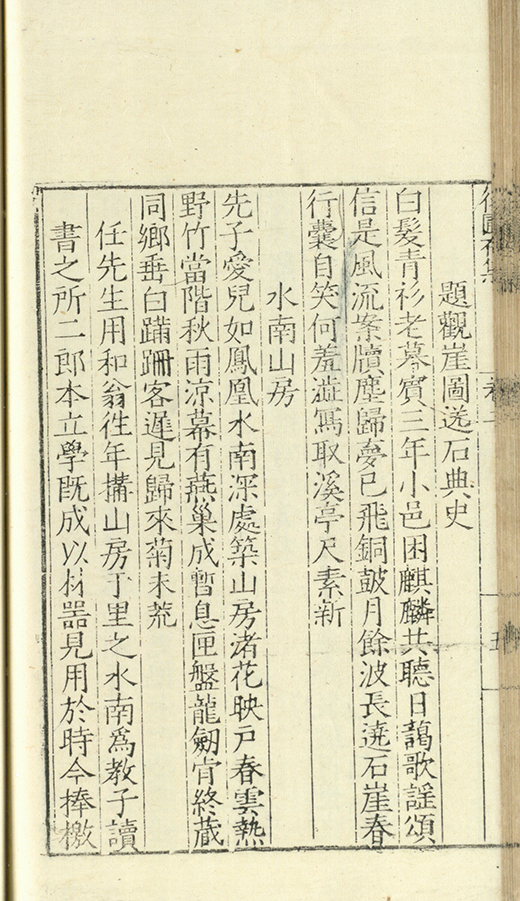 題觀崖圖送石典史
白髮青衫老幕賓三年小邑困麒麟共聽日藹歌謡頌
信是風流案牘塵歸夢已飛銅皷月餘波長遶石崖春
行囊自笑何羞澁寫取溪亭尺素新
水南山房
先子愛兒如鳳凰水南深處築山房渚花映戸春雲熱
野竹當階秋雨涼幕有燕巢成暫息匣盤龍劒肯終蔵
同鄉垂白蹣跚客遲見歸來菊未荒
任先生用和翁徃年搆山房于里之水南爲教子讀
書之所二郎本立學既成以材器見用於時今捧檄